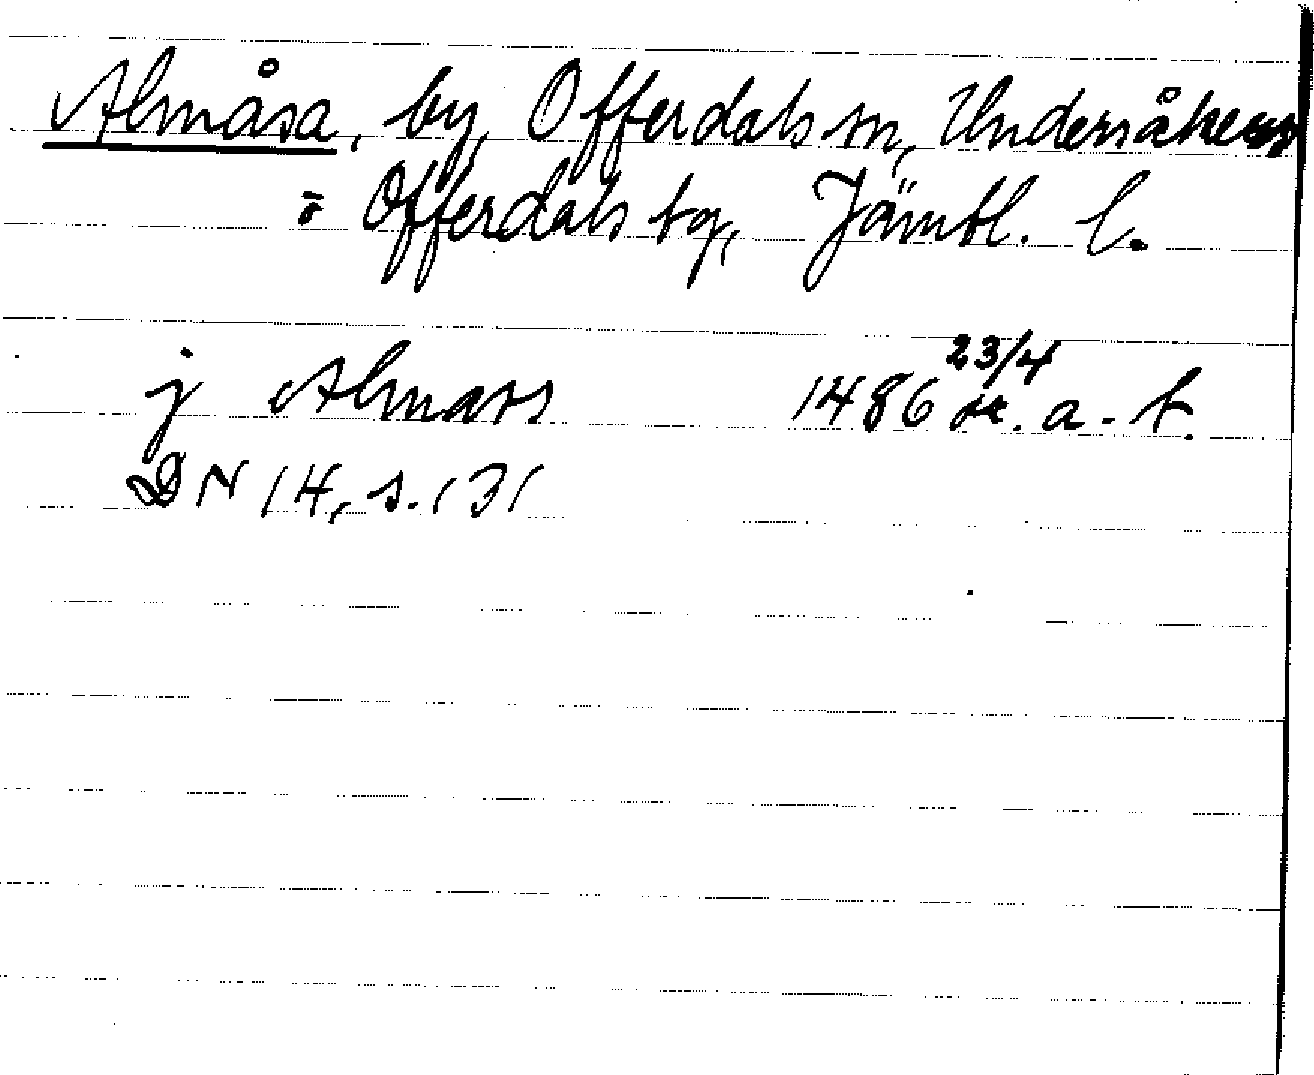 Almåsa, by, Offerdals sn, Undersåkers
o Offerdals tg, Jämtl. l.
j Almass 1486 23/4 or. a. t.
DN 14, s. 131